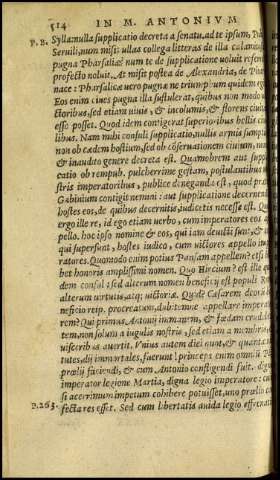 514 IN M. ANTONIVM
P. B. Sylla: nulla supplicatio decreta a senatu, ad te ipsum, Pub.
Seruili, num misi ullas collega litteras de illa calamitosissima
pugna Pharsalica? num te de supplicatione uoluit referre?
profecto noluit. At misit postea de Alexandria, de Phar
nace: Pharsalicæ uero pugnæ ne triumphum quidem egit.
Eos enim ciues pugna illa sustulerat, quibus non modo ui
ctoribus, sed etiam uiuis, & incolumis, & florens ciuitas
esse posset. Quod idem contigerat superioribus bellis ciui
libus. Nam mihi consuli supplicatio, nullis armis sumptis,
non ob cædem hostium, sed ob conseruationem ciuium, nouo
& inaudito genere decreta est. Quamobrem aut suppli
catio ob rempub. pulcherrime gestam, postulantibus no
stris imperatoribus, publice deneganda est, quod præter
Gabinium contigit nemini: aut supplicatione decernenda
hostes eos, de quibus decernitis, iudicetis necesse est. Quod
ergo ille re, id ego etiam uerbo, cum imperatores eos ap
pello. hoc ipso nomine & eos, qui iam deuicti sunt, & eos
qui supersunt, hostes iudico, cum uictores appello impe
ratores. Quomodo enim potius Pansam appellem? etsi ha
bet honoris amplissimi nomen. Quo Hircium? est ille qui
dem consul: sed alterum nomen beneficij est populi Rom.
alterum uirtutis atque uictoriæ. Quid? Cæsarem deorum be
neficio reip. procreatum, dubitemne appellare imperato
rem? Qui primus Antonij immanem, & fœdam crudelita
tem, non solum a iugulis nostris, sed etiam a membris, &
uisceribus auertit. Vnius autem diei quot, & quantæ uir
tutes, dij immortales, fuerunt! princeps enim omnium Pansa
prælij faciendi, & cum Antonio confligendi fuit. dignus
imperator legione Martia, digna legio imperatore: cuius
si acerrimum impetum cohibere potuisset, uno prælio con
P. 263. fecta res esset. Sed cum libertatis auida legio effrenatius